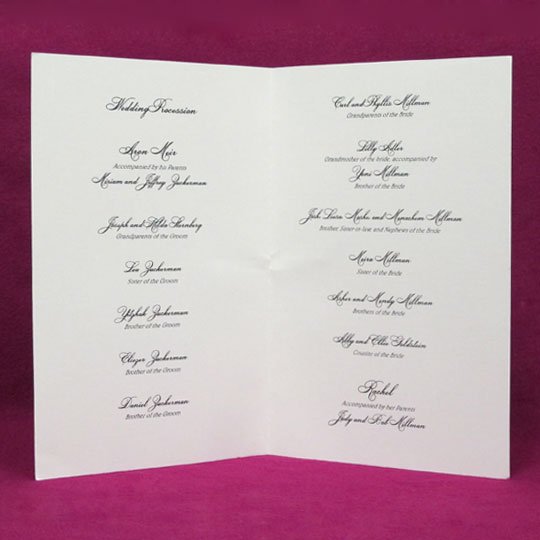 Wedding Procession
Aron Meir
Accompanied by his Parents
Miriam and Jeffrey Zuckerman
Joseph and Hilda Sternberg
Grandparents of the Groom
Lea Zuckerman
Sister of the Groom
Yitzhak Zuckerman
Brother of the Groom
Eliezer Zuckerman
Brother of the Groom
Daniel Zuckerman
Brother of the Groom
Carl and Phyllis Millman
Grandparents of the Bride
Lilly Adler
Grandmother of the bride, accompanied by
Yoni Millman
Brother of the Bride
Josh Laura Moshe and Menachem Millman
Brother, Sister-in-law and Nephews of the Bride
Meira Millman
Sister of the Bride
Asher and Mendy Millman
Brothers of the Bride
Ally and Ellie Goldstein
Cousins of the Bride
Rachel
Accompanied by her Parents
Judy and Pat Millman